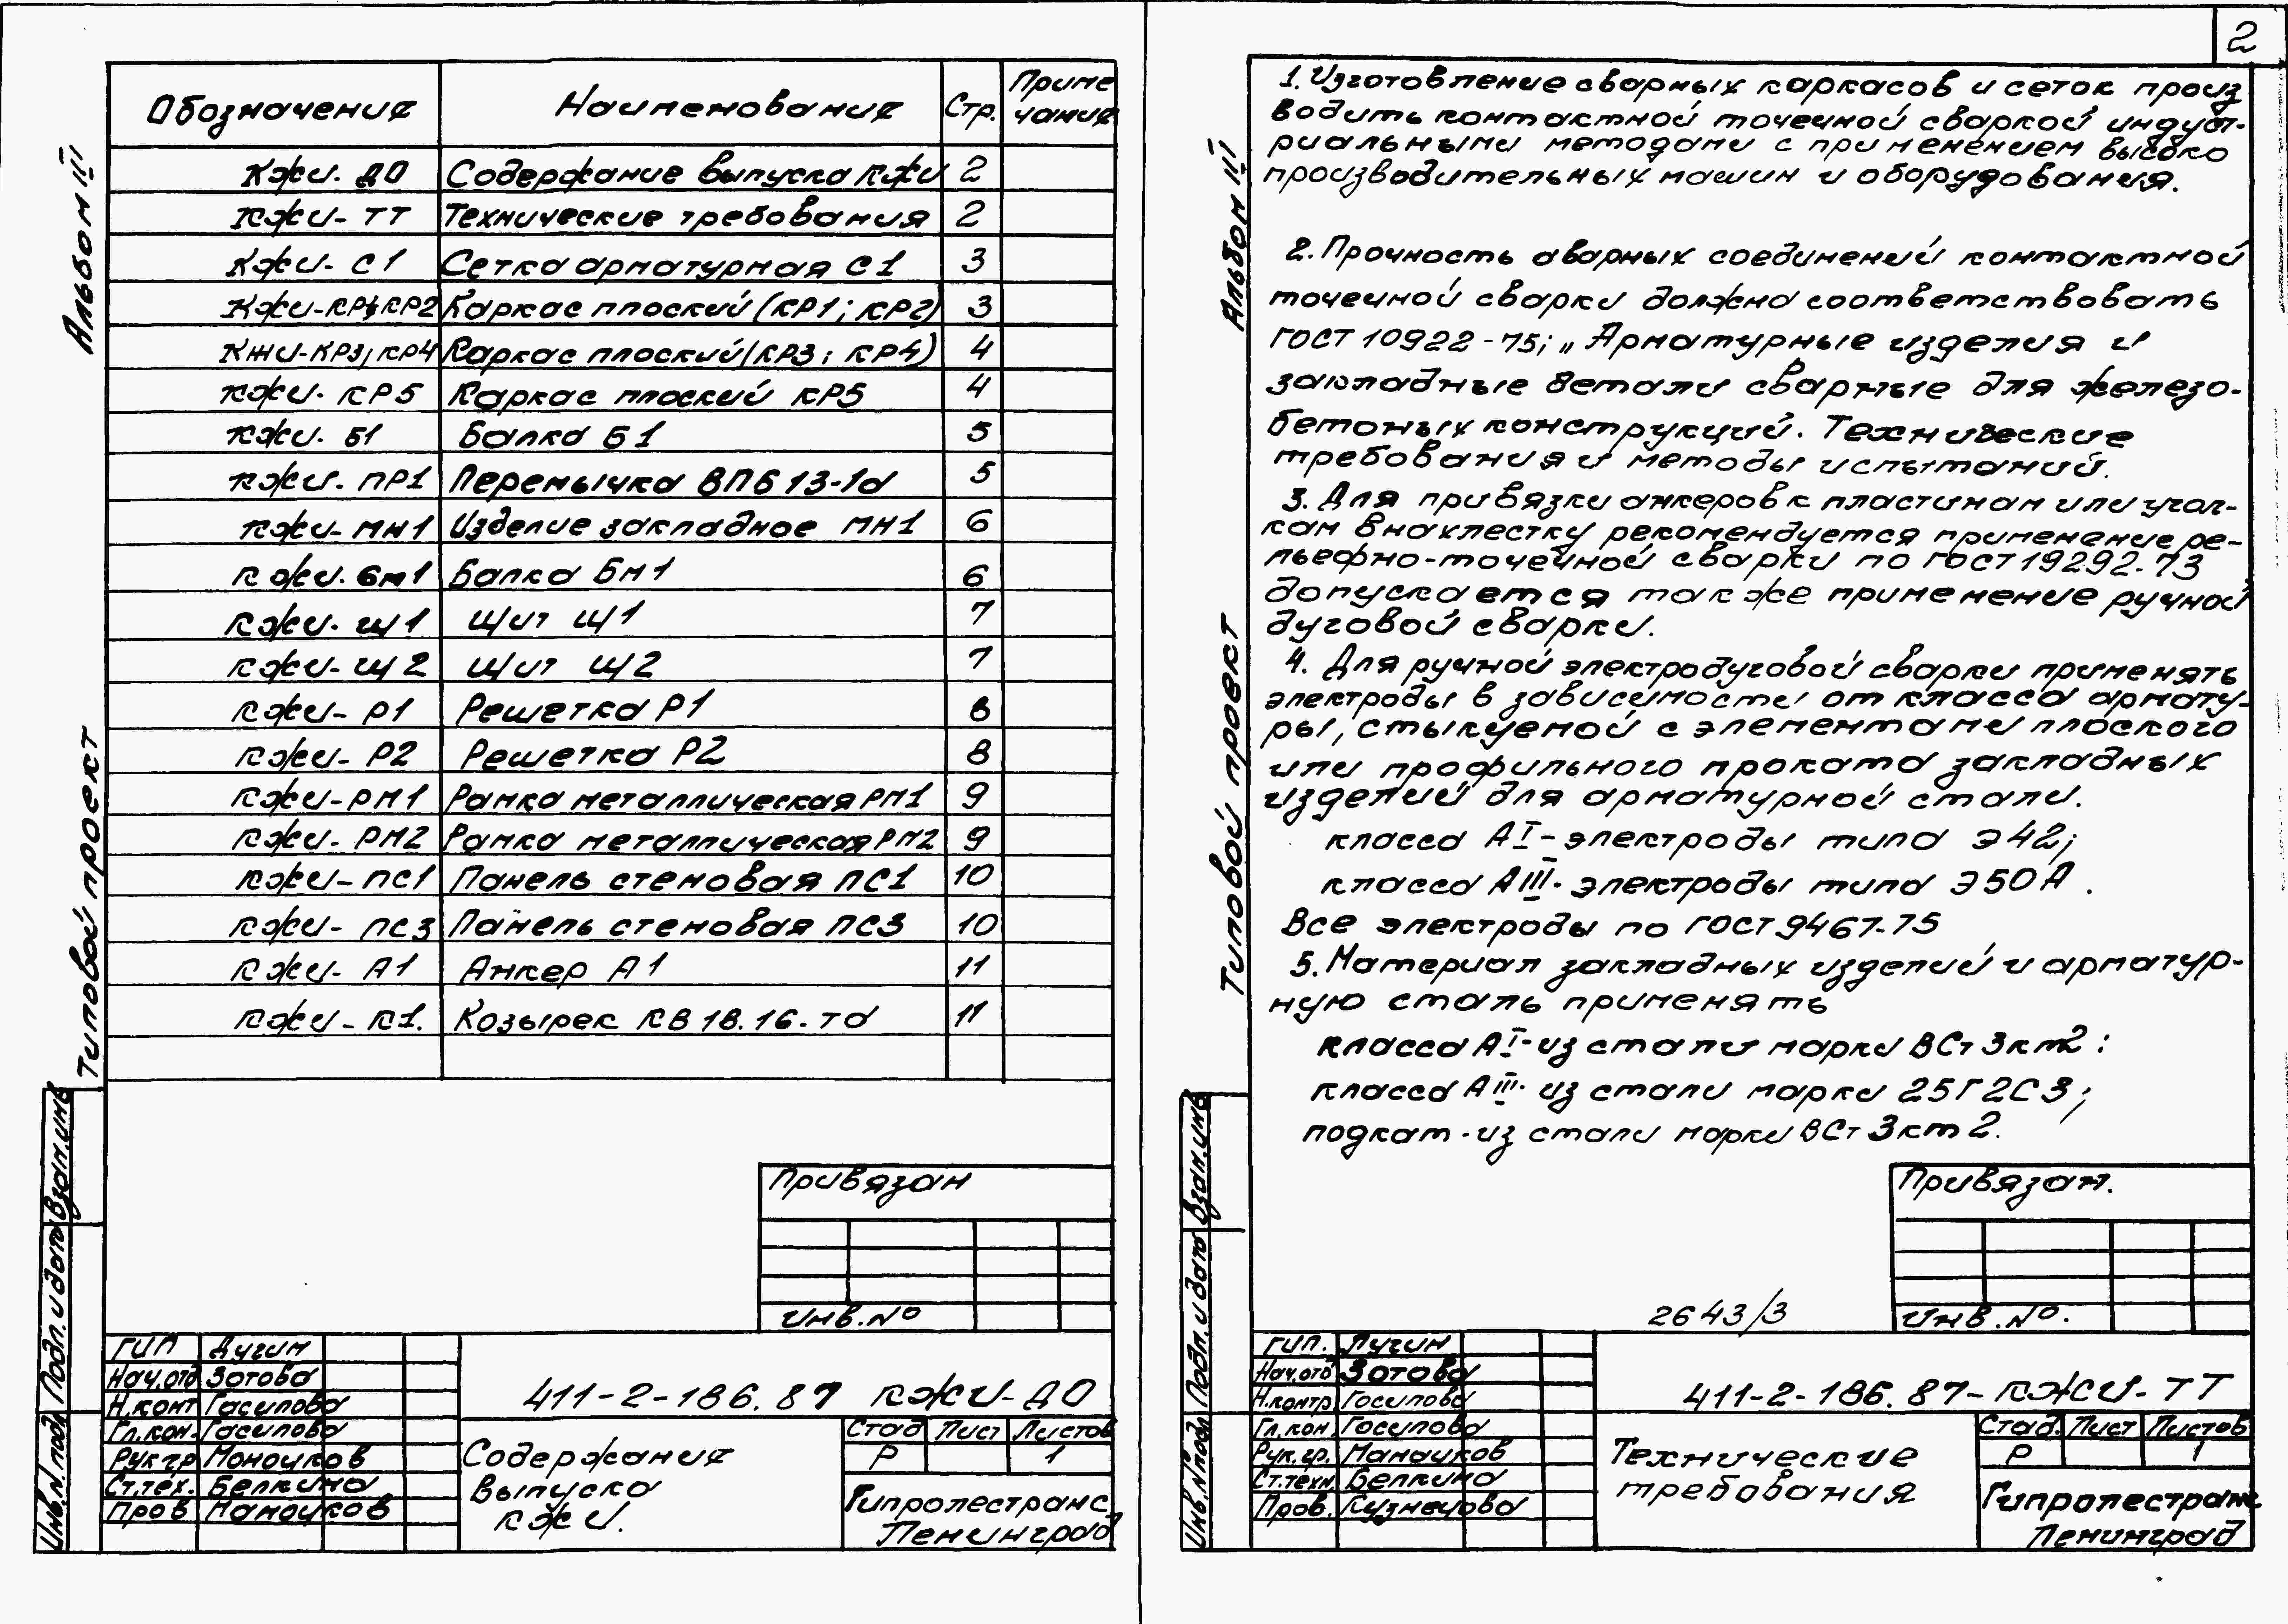 Обозначение Наименование Стр. Приме
чание
КЖИ. ДО Содержание выпуска КЖИ 2
КЖИ- ТТ Технические требования 2
КЖИ- С1 Сетка арматурная С1 3
КЖИ-КР1; КР2 Каркас плоский (КР1; КР2) 3
КЖИ-КР3; КР4 Каркас плоский (КР3; КР4) 4
КЖИ. КР5 Каркас плоский КР5 4
КЖИ. Б1 Балка Б1 5
КЖИ. ПР1 Перемычка ВПБ 13-1а 5
КЖИ- МН1 Изделие закладное МН1 6
КЖИ. Бм1 Балка Бм1 6
КЖИ. Щ1 Щит Щ1 7
КЖИ- Щ2 Щит Щ2 7
КЖИ- Р1 Решетка Р1 8
КЖИ- Р2 Решетка Р2 8
КЖИ-РМ1 Рамка металлическая РМ1 9
КЖИ- РМ2 Рамка металлическая РМ2 9
КЖИ-ПС1 Панель стеновая ПС1 10
КЖИ- ПС3 Панель стеновая ПС3 10
КЖИ- А1 Анкер А1 11
КЖИ-К1. Козырек КВ 18.16.-та 11
Альбом III
Типовой проект
Взам.инв
Подп. и дата
Инв.N подл
Привязан
Инв.No
ГИП Дугин
Нач.отд Зотова
Н.конт Гасилова
Гл.кон. Гасилова
Рук гр Манацков
Ст.тех. Белкина
Пров Манацков
411-2-186.87 КЖИ-ДО
Содержание
выпуска
КЖИ.
Стад Лист Листов
Р 1
Гипролестранс
Ленинград
2
1. Изготовление сварных каркасов и сеток произ
водить контактной точечной сваркой индуст-
риальными методами с применением высоко
производительных машин и оборудования.
2. Прочность сварных соединений контактной
точечной сварки должна соответствовать
ГОСТ 10922-75; „Арматурные изделия и
закладные детали сварные для железо-
бетоных конструкций. Технические
требования и методы испытаний.
3. Для привязки анкеров к пластинам или угол-
кам внахлестку рекомендуется применение ре-
льефно-точечной сварки по ГОСТ 19292-73
допускается также применение ручной
дуговой сварки.
4. Для ручной электродуговой сварки применять
электроды в зависимости от класса армату-
ры, стыкуемой с элементами плоского
или профильного проката закладных
изделий для арматурной стали.
класса АI-электроды типа Э42;
класса АIII- электроды типа Э50А.
Все электроды по ГОСТ 9467-75
5. Материал закладных изделий и арматур-
ную сталь применять
класса АI-из стали марки ВСт 3кп2;
класса АIII- из стали марки 25Г2С3;
подкат-из стали марки ВСт 3кп2.
Альбом III
Типовой проект
Взам.инв
Подп. и дата
Инв.N подл
Привязан.
Инв.No.
2643/3
ГИП. Лугин
Нач.отд Зотова
Н.контр. Госилова
Гл.кон. Госилова
Рук.гр. Манацков
Ст.техн. Белкина
Пров. Кузнецова
411-2-186.87-КЖИ-ТТ
Технические
требования
Стад. Лист Листов
Р 1
Гипролестранс
Ленинград